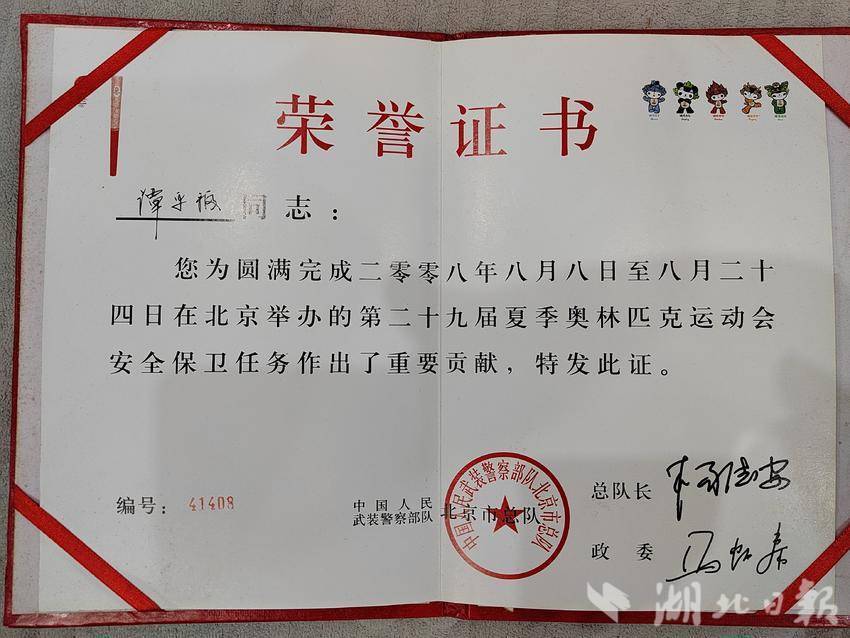 荣誉证书
同志：
您为圆满完成二零零八年八月八日至八月二十
四日在北京举办的第二十九届夏季奥林匹克运动会
安全保卫任务作出了重要贡献，特发此证。
编号：41408
中国人民
武装警察部队 北京市总队
中国人民武装警察部队北京市总队
总队长
政委
湖北日报